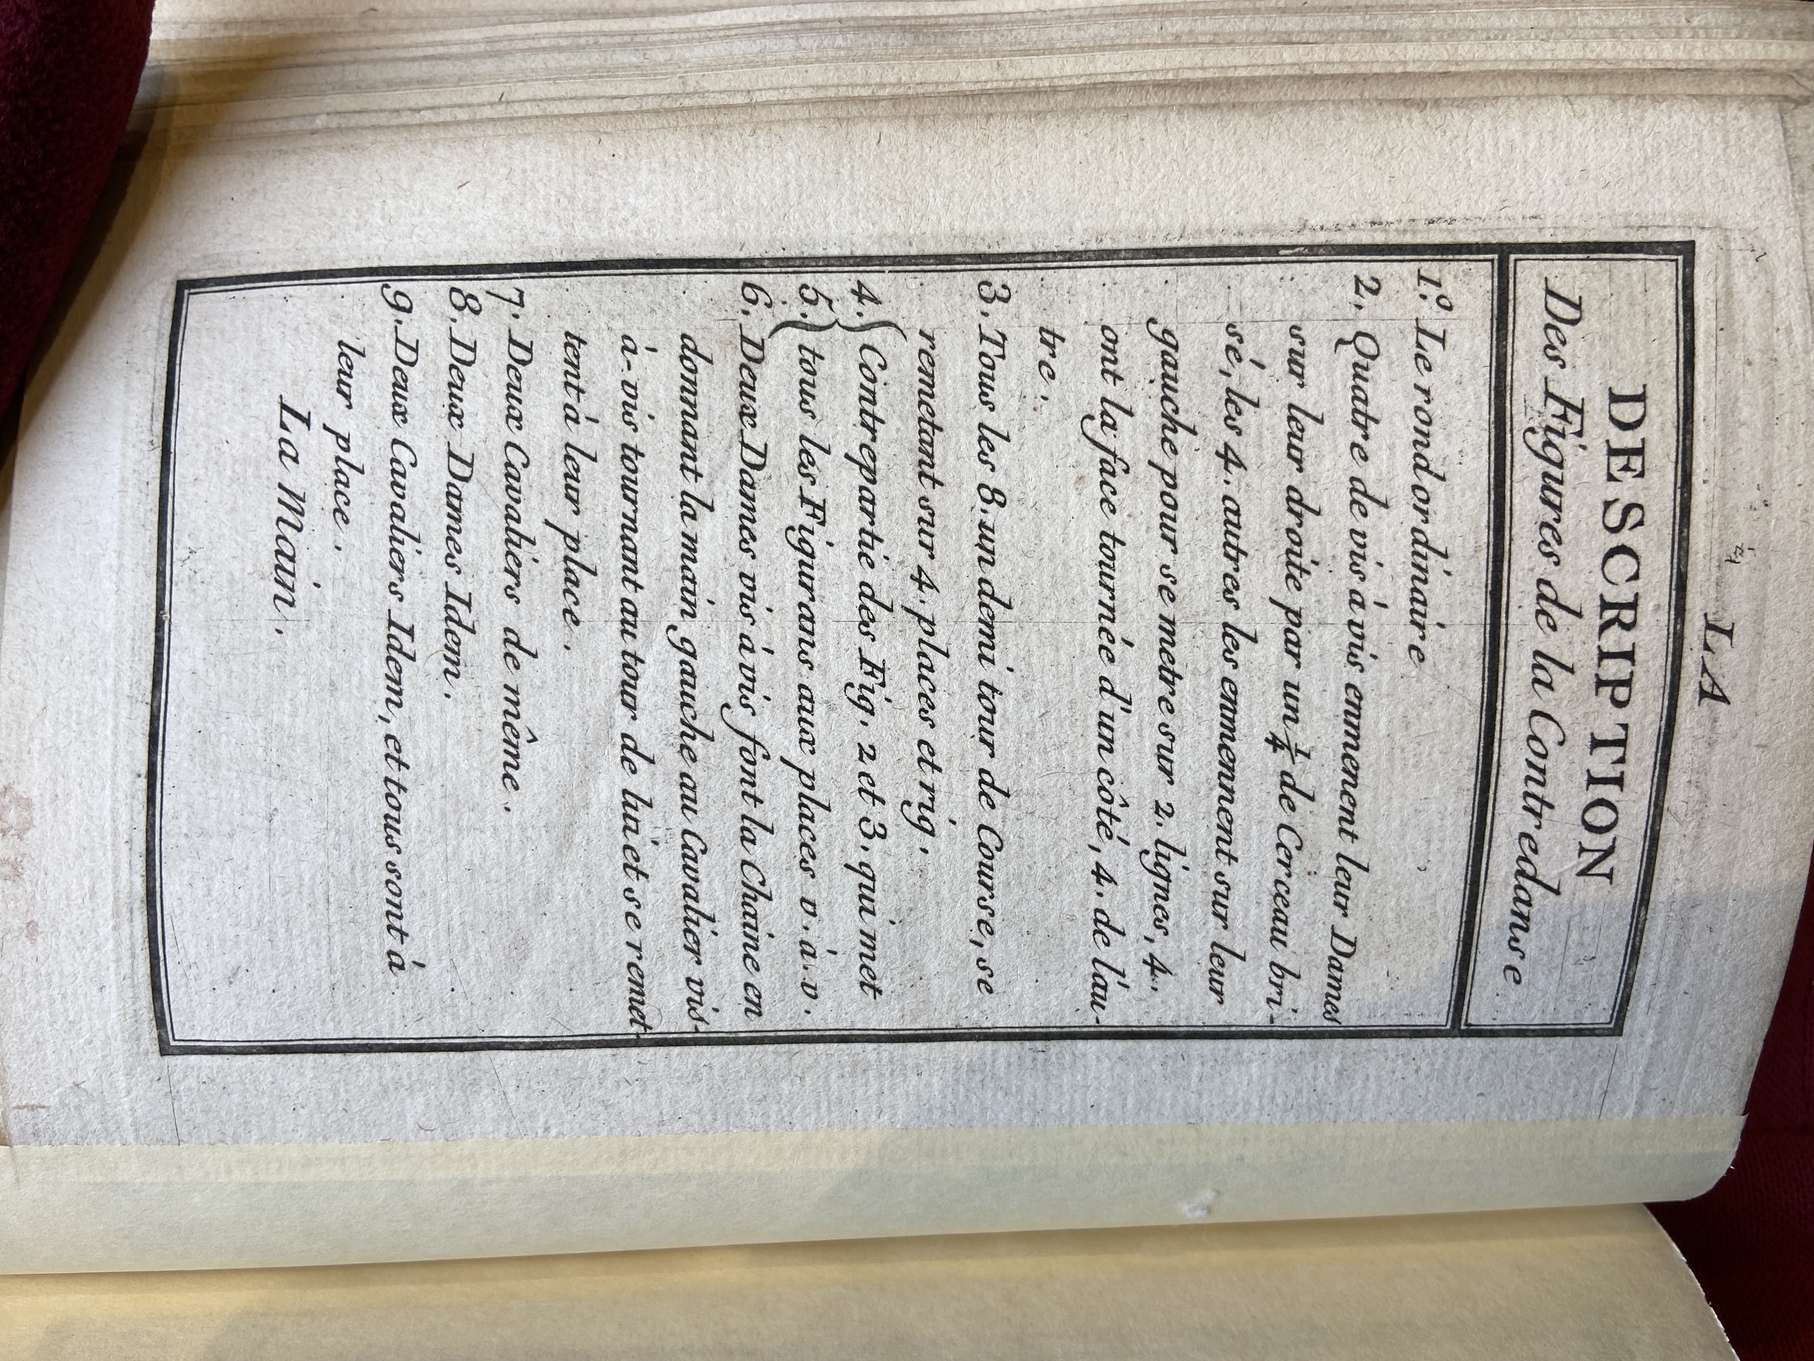 LA
DESCRIPTION
Des Figures de la Contredanse
1.º Le rond ordinaire
2. Quatre de vis à vis enmenent leur Dames
sur leur droite par un ¼ de Cerceau bri-
sé, les 4. autres les enmennent sur leur
gauche pour se metre sur 2. lignes, 4.
ont la face tournée d'un côté, 4. de l'au-
tre.
3. Tous les 8. un demi tour de Course, se
remetant sur 4. places et rig.
4. Contrepartie des Fig. 2 et 3. qui met
5. tous les Figurans aux places v. à. v.
6. Deux Dames vis à vis font la Chaine en
donnant la main gauche au Cavalier vis-
à-vis tournant au tour de lui et se remet
tent à leur place.
7. Deux Cavaliers de même.
8. Deux Dames Idem.
9. Deux Cavaliers Idem, et tous sont à
leur place.
La Main.